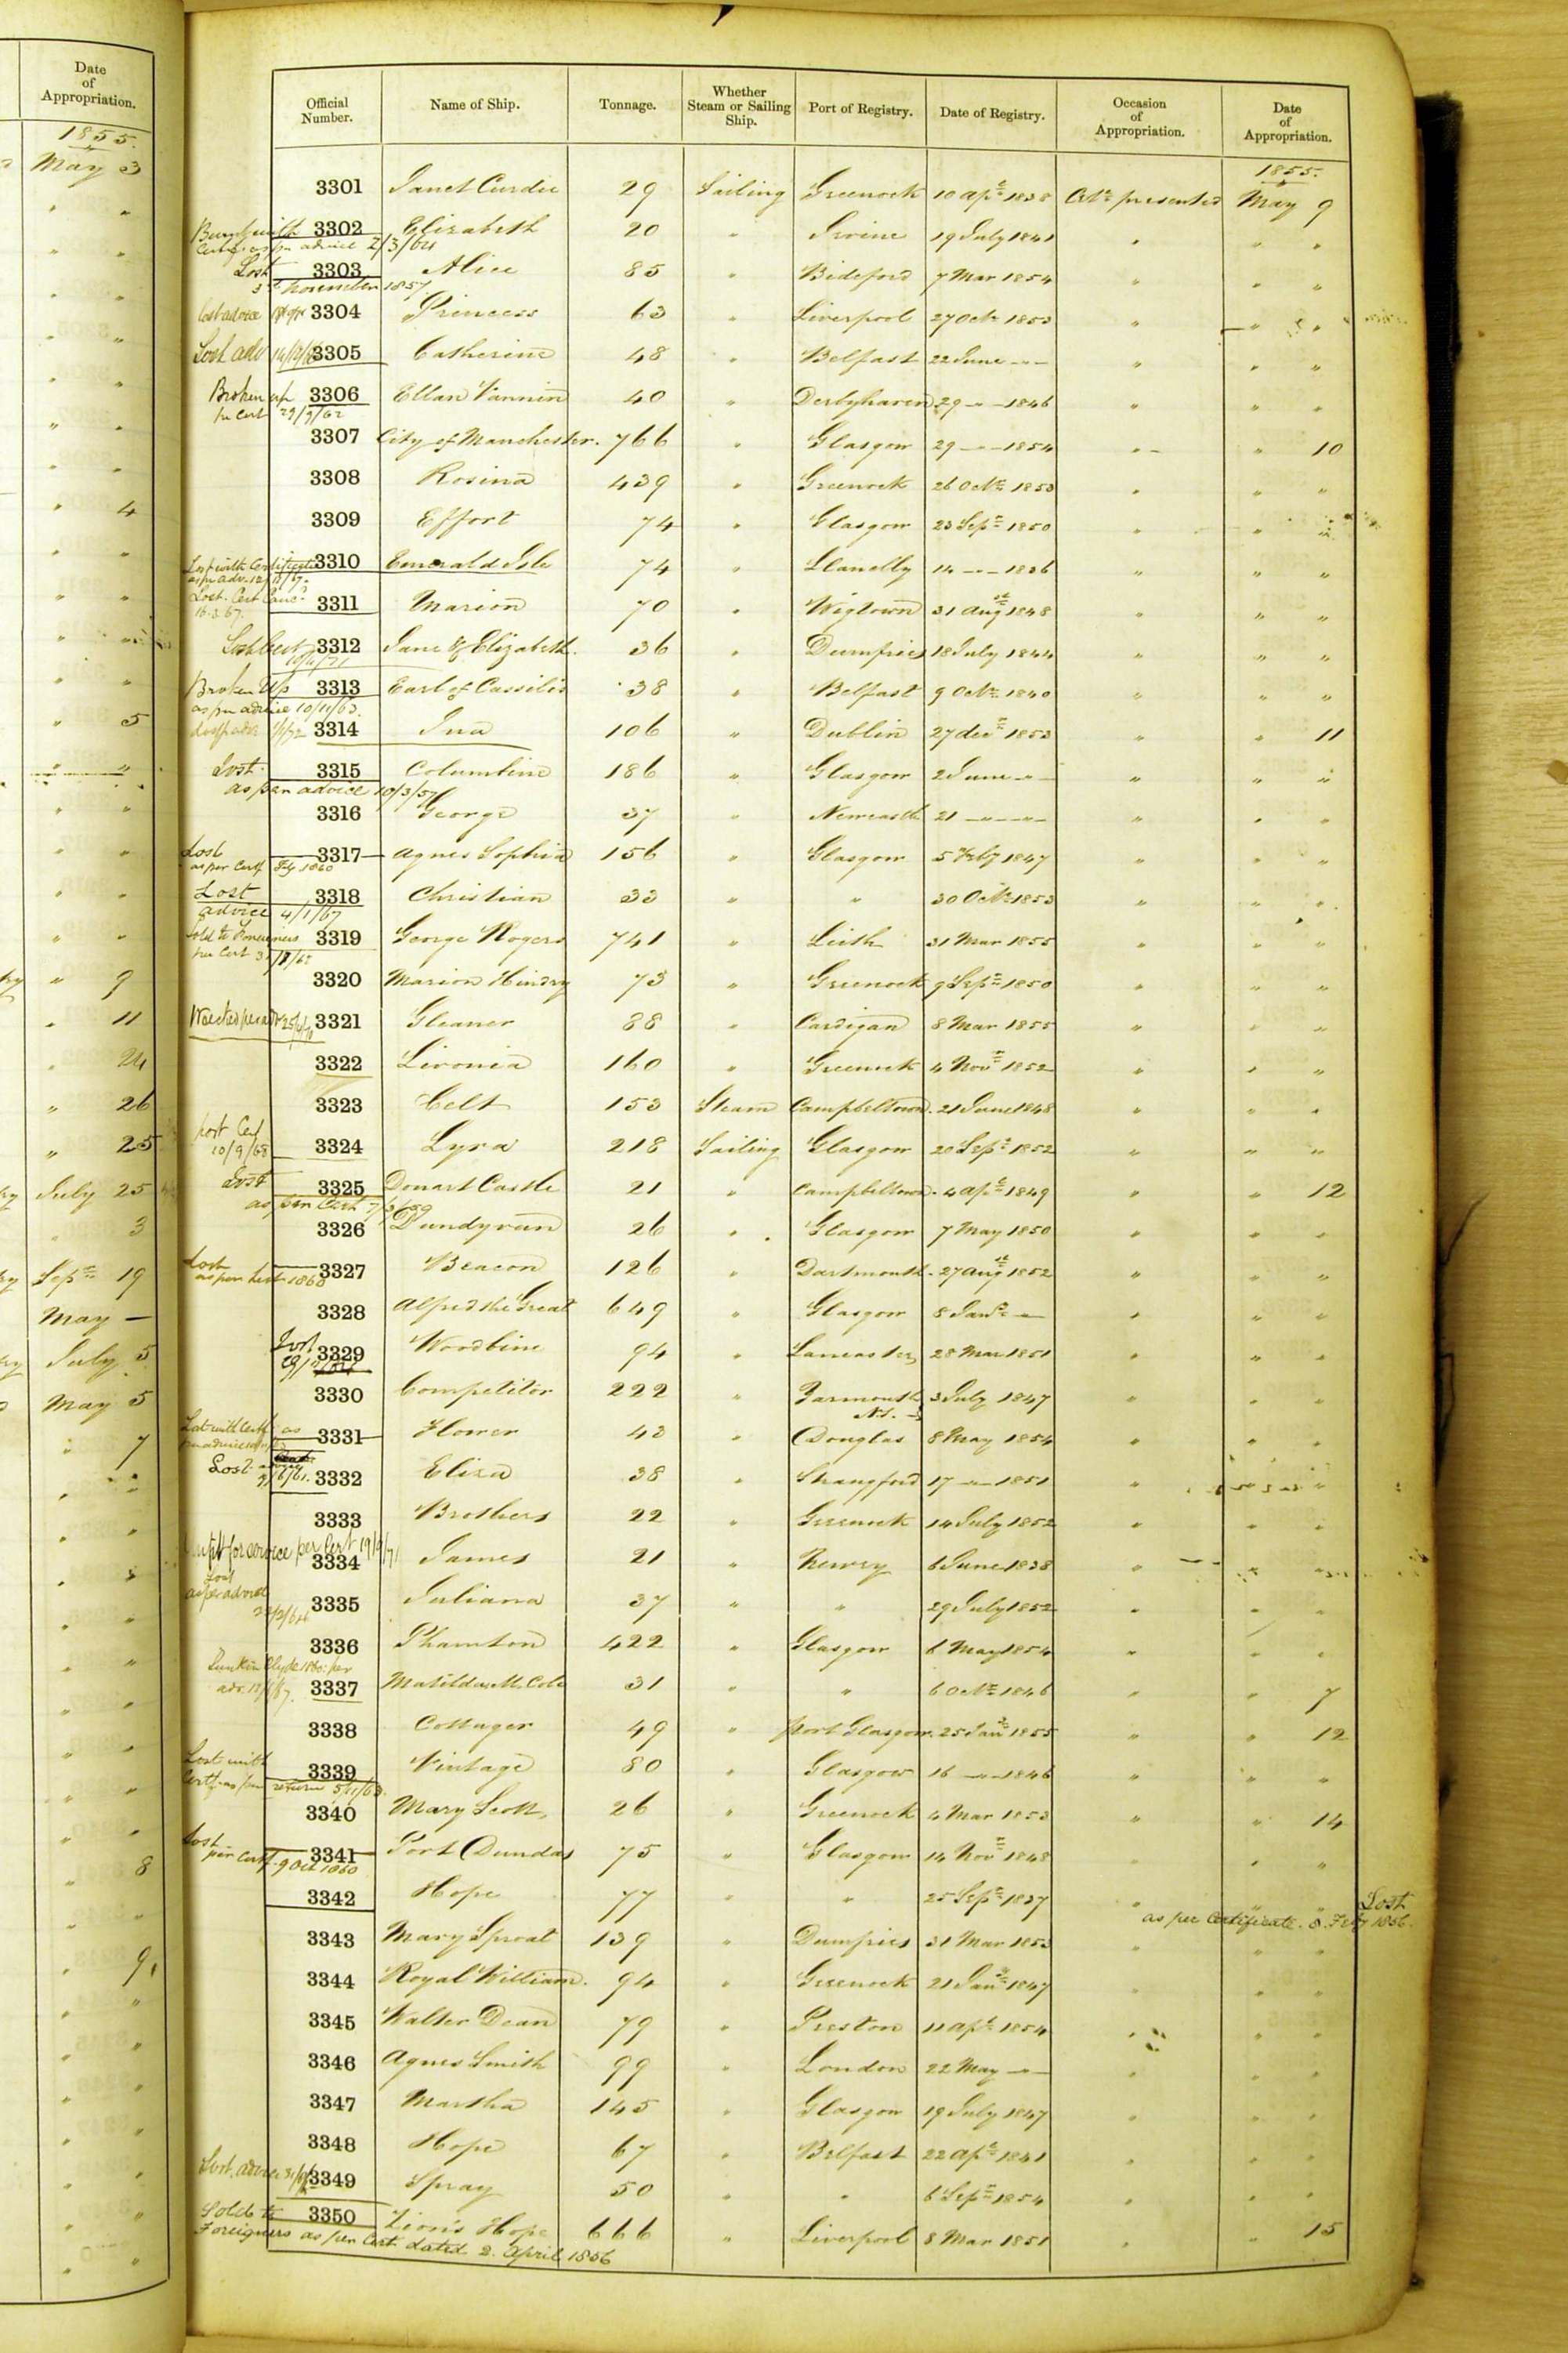 Date of Appropriation.
1855.
May 3
" "
" 4
" 5
" 9
" 11
24
" 26
" 25
July 25
3
Sepr 19
May —
July 5
May 5
" 7
8
9
Official Number. Name of Ship. Tonnage. Whether Steam or Sailing Ship. Port of Registry. Date of Registry. Occasion of Appropriation. Date of Appropriation.
1855.
3301 Janet Curdie 29 Sailing Greenock 10 Apl 1838 Certe presented May 9
3302 Elizabeth 20 " Irvine 19 July 1841 " " "
as per advice 2/3/64
Lost 3303 Alice 85 " Bideford 7 Mar 1854 " " "
November 1857
Lost advice 3304 Princess 63 " Liverpool 27 Octr 1853 " " "
Lost adv 3305 Catherine 48 " Belfast 22 June " " " "
Broken up 3306 Ellan Vannin 40 " Derbyhaven 29 " 1846 " " "
per Cert 29/9/62
3307 City of Manchester. 766 " Glasgow 29 " 1854 " " 10
3308 Rosina 439 " Greenock 26 Octr 1853 " " "
3309 Effort 74 " Glasgow 23 Sepr 1850 " " "
Lost with Certificate 3310 Emerald Isle 74 " Llanelly 14 " 1836 " " "
as per adv.
Lost. Cert Canc. 3311 Marion 70 " Wigtown 31 Augst 1848 " " "
16.3.67.
Lost Cert 3312 Jane & Elizabeth. 36 " Dumfries 18 July 1844 " " "
Broken Up 3313 Earl of Cassilis 38 " Belfast 9 Octr 1840 " " "
as per advice 10/11/63.
3314 Ina 106 " Dublin 27 decr 1853 " " 11
Lost. 3315 Columbine 186 " Glasgow 2 June " " " "
as per advice 10/3/57
3316 George 37 " Newcastle 21 " " " " "
Lost 3317 Agnes Sophia 156 " Glasgow 5 Feby 1847 " " "
as per Certf Feby 1860
Lost 3318 Christian 33 " " 30 Octr 1853 " " "
advice 4/1/67
Sold to Foreigners 3319 George Rogers 741 " Leith 31 Mar 1855 " " "
per Cert
3320 Marion Hindry 73 " Greenock 9 Sepr 1850 " " "
3321 Gleaner 88 " Cardigan 8 Mar 1855 " " "
3322 Livonia 160 " Greenock 4 Novr 1852 " " "
3323 Celt 153 Steam Campbeltown. 21 June 1848 " " "
10/9/68 3324 Lyra 218 Sailing Glasgow 20 Sepr 1852 " " "
Lost 3325 Douart Castle 21 " Campbeltown. 4 Apl 1849 " " 12
as per Cert
3326 Dundyvan 26 " Glasgow 7 May 1850 " " "
Lost 3327 Beacon 126 " Dartmouth. 27 Augst 1852 " " "
as per list 1860
3328 Alfred the Great 649 " Glasgow 8 Jany " " " "
Lost 3329 Woodbine 94 " Lancaster 28 Mar 1851 " " "
3330 Competitor 222 " Yarmouth 3 July 1847 " " "
N.S.
Lost with Certf as 3331 Flower 43 " Douglas 8 May 1854 " " "
Lost 3332 Eliza 38 " Strangford 17 " 1851 " " "
3333 Brothers 22 " Greenock 14 July 1852 " " "
for service per Cert 19/9/71
3334 James 21 " Newry 6 June 1838 " " "
Lost
as per advice 3335 Juliana 37 " " 29 July 1852 " " "
3336 Thornton 422 " Glasgow 6 May 1854 " " "
Sunk in Clyde 1860 per
3337 Matilda M. Cole 31 " " 6 Octr 1846 " " 7
3338 Cottager 49 " Port Glasgow. 25 Jany 1855 " " 12
Lost with 3339 Vintage 80 " Glasgow 16 " 1846 " " "
Certf as per return
3340 Mary Scott 26 " Greenock 4 Mar 1853 " " 14
Lost 3341 Port Dundas 75 " Glasgow 14 Novr 1848 " " "
per Certf. 9 Oct 1860
3342 Hope 77 " " 25 Sepr 1837 " " " Lost
as per Certificate. 8. Feby 1856.
3343 Mary Sproat 139 " Dumfries 31 Mar 1853 " " "
3344 Royal William. 94 " Greenock 21 Jany 1847 " " "
3345 Walter Dean 79 " Preston 11 Apl 1854 " " "
3346 Agnes Smith 99 " London 22 May " " " "
3347 Martha 145 " Glasgow 19 July 1847 " " "
3348 Hope 67 " Belfast 22 Apl 1841 " " "
Lost, advice 3349 Spray 50 " " 6 Sepr 1854 " " "
Sold to 3350 Zion's Hope 666 " Liverpool 8 Mar 1851 " " 15
Foreigners as per Cert. dated 2. April 1856